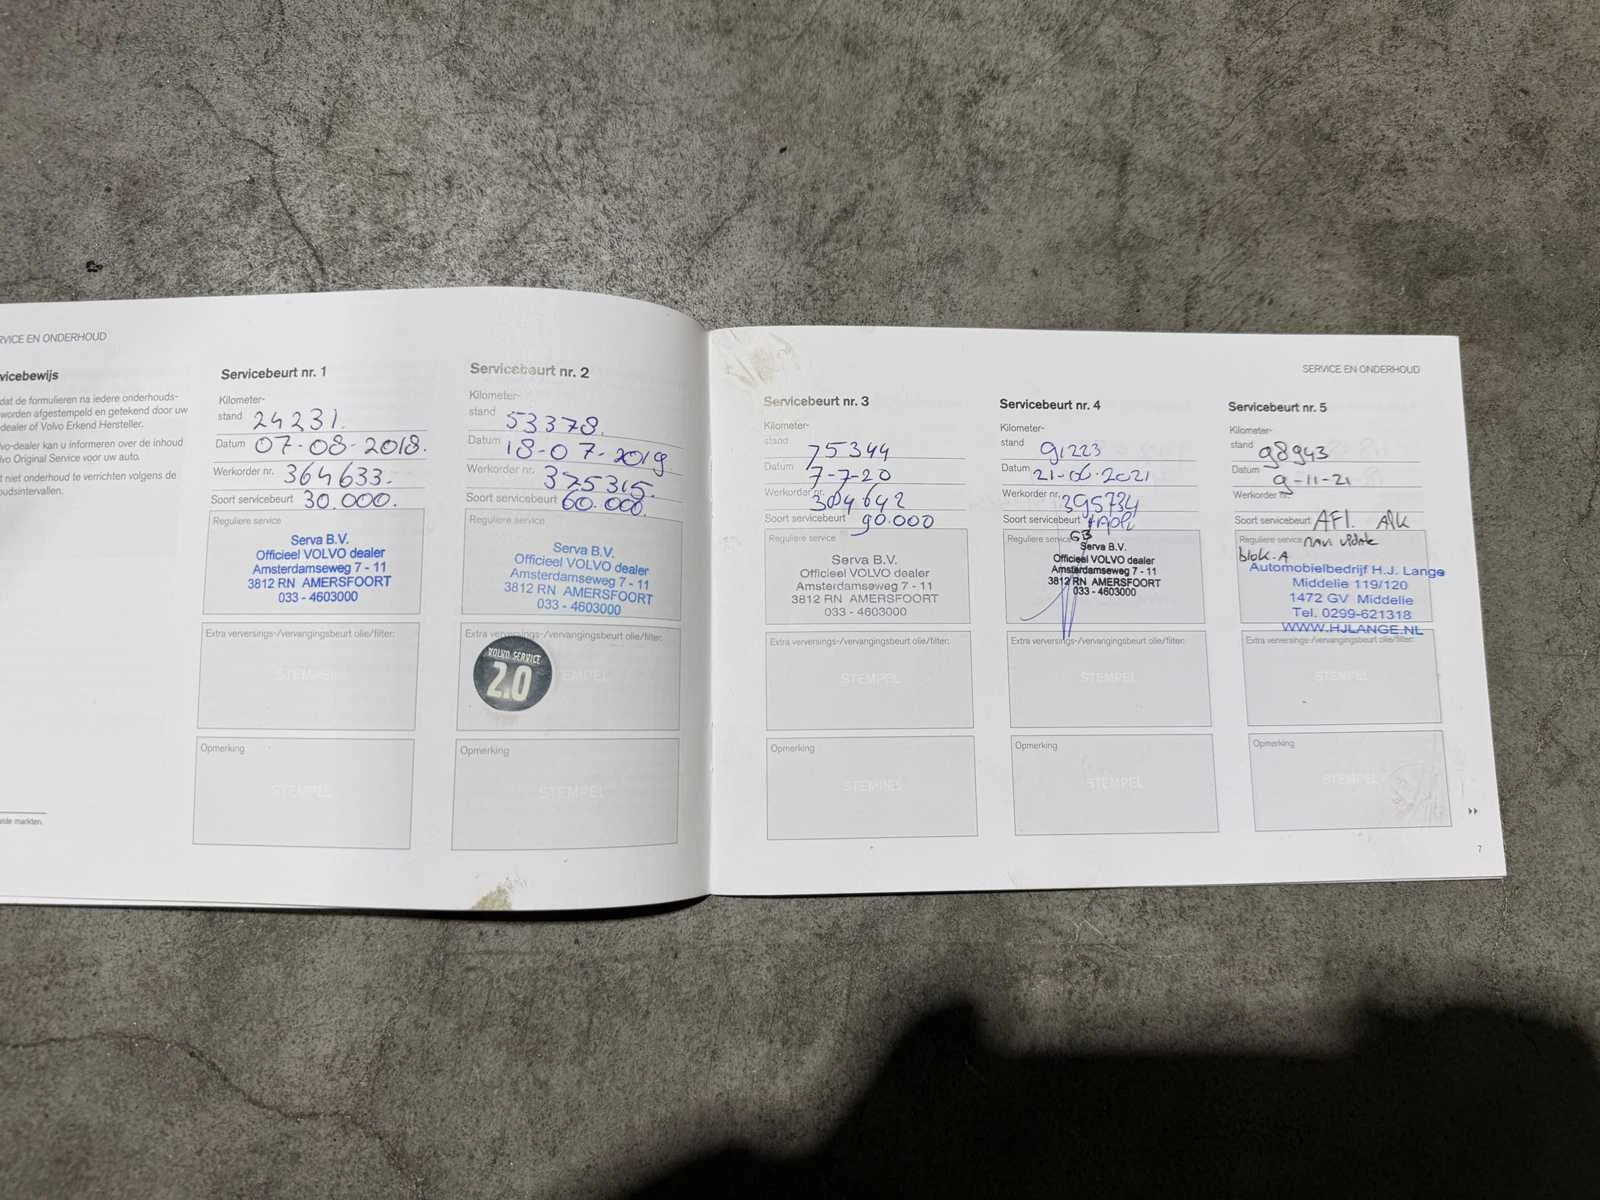 RVICE EN ONDERHOUD
vicebewijs
dat de formulieren na iedere onderhouds-
worden afgestempeld en getekend door uw
dealer of Volvo Erkend Hersteller.
vo-dealer kan u informeren over de inhoud
lvo Original Service voor uw auto.
t niet onderhoud te verrichten volgens de
oudsintervallen.
markten.
Servicebeurt nr. 1
Kilometer-
stand 24231.
Datum 07-08-2018.
Werkorder nr. 364633.
Soort servicebeurt 30.000.
Reguliere service
Serva B.V.
Officieel VOLVO dealer
Amsterdamseweg 7 - 11
3812 RN AMERSFOORT
033 - 4603000
Extra verversings-/vervangingsbeurt olie/filter:
STEMPEL
Opmerking
STEMPEL
Servicebeurt nr. 2
Kilometer-
stand 53378.
Datum 18-07-2019
Werkorder nr. 375315.
Soort servicebeurt 60.000.
Reguliere service
Serva B.V.
Officieel VOLVO dealer
Amsterdamseweg 7 - 11
3812 RN AMERSFOORT
033 - 4603000
Extra verversings-/vervangingsbeurt olie/filter:
VOLVO SERVICE
2.0
EMPEL
Opmerking
STEMPEL
SERVICE EN ONDERHOUD
Servicebeurt nr. 3
Kilometer-
stand 75344
Datum 7-7-20
Werkorder nr. 384642
Soort servicebeurt 90.000
Reguliere service
Serva B.V.
Officieel VOLVO dealer
Amsterdamseweg 7 - 11
3812 RN AMERSFOORT
033 - 4603000
Extra verversings-/vervangingsbeurt olie/filter:
STEMPEL
Opmerking
STEMPEL
Servicebeurt nr. 4
Kilometer-
stand 91223
Datum 21-06-2021
Werkorder nr. 395734
Soort servicebeurt
Reguliere service GB
Serva B.V.
Officieel VOLVO dealer
Amsterdamseweg 7 - 11
3812 RN AMERSFOORT
033 - 4603000
Extra verversings-/vervangingsbeurt olie/filter:
STEMPEL
Opmerking
STEMPEL
Servicebeurt nr. 5
Kilometer-
stand 98943
Datum 9-11-21
Werkorder nr.
Soort servicebeurt AFl.
Reguliere service
blok. A
Automobielbedrijf H.J. Lange
Middelie 119/120
1472 GV Middelie
Tel. 0299-621318
WWW.HJLANGE.NL
Extra verversings-/vervangingsbeurt olie/filter:
STEMPEL
Opmerking
STEMPEL
7